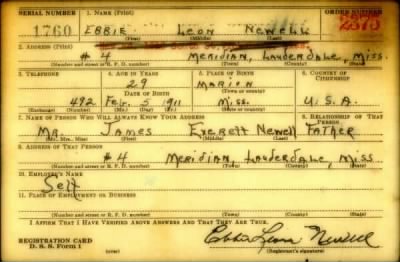 SERIAL NUMBER 1. NAME (Print) ORDER NUMBER
1760 EBBIE LEON NEWELL 2375
(First) (Middle) (Last)
2. ADDRESS (Print)
#4 MERIDIAN, LAUDERDALE, MISS.
(Number and street or R. F. D. number) (Town) (County) (State)
3. TELEPHONE 4. AGE IN YEARS 5. PLACE OF BIRTH 6. COUNTRY OF CITIZENSHIP
29 MARION
DATE OF BIRTH (Town or county)
492 Feb. 5 1911 Miss. U.S.A.
(Exchange) (Number) (Mo.) (Day) (Yr.) (State or country)
7. NAME OF PERSON WHO WILL ALWAYS KNOW YOUR ADDRESS 8. RELATIONSHIP OF THAT PERSON
MR. JAMES Everett Newell FATHER
(Mr., Mrs., Miss) (First) (Middle) (Last)
9. ADDRESS OF THAT PERSON
#4 MERIDIAN, LAUDERDALE, MISS
(Number and street or R. F. D. number) (Town) (County) (State)
10. EMPLOYER'S NAME
Self
11. PLACE OF EMPLOYMENT OR BUSINESS
(Number and street or R. F. D. number) (Town) (County) (State)
I AFFIRM THAT I HAVE VERIFIED ABOVE ANSWERS AND THAT THEY ARE TRUE.
REGISTRATION CARD Ebbie Leon Newell
D. S. S. Form 1 (Registrant's signature)